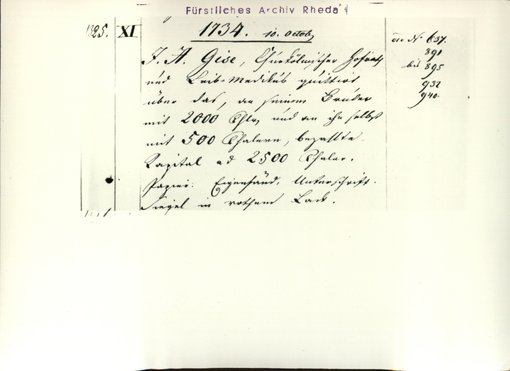 Fürstliches Archiv Rheda
1325. XI.
1734. 10. Octob.
J. H. Gise, Churkölnischer Hofrath
und Leib-Medikus quittirt
über das, an seinen Bruder
mit 2000 Thlr, und an ihn selbst
mit 500 Thalern, bezahlte
Kapital ad 2500 Thaler.
Papier. Eigenhänd. Unterschrift.
Siegel in rothem Lack.
cfr N. 637.
891
bis 895
932
940.